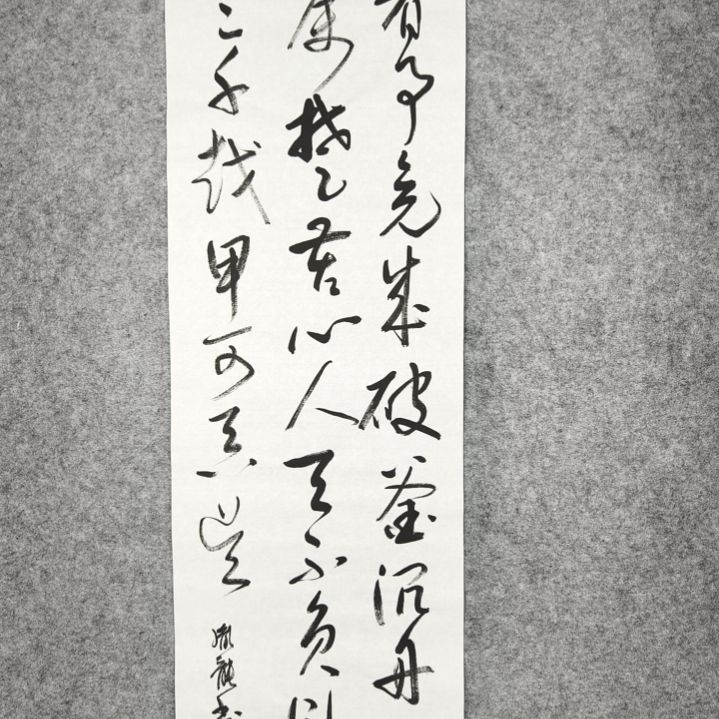 者事竟成破釜沉舟
属楚苦心人天不负卧
三千越甲可吞吴